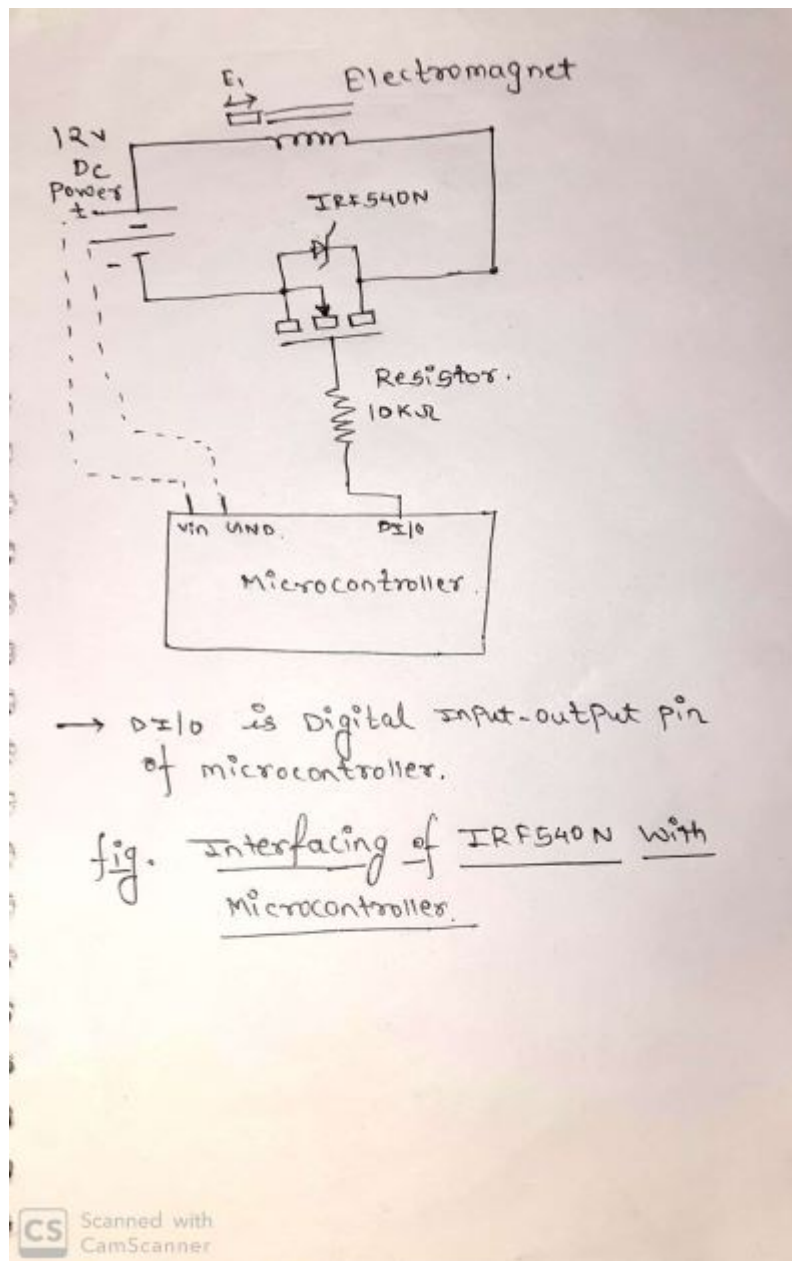 E1
Electromagnet
12v
DC
Power
+
-
-
IRF540N
Resistor.
10KΩ
Vin GND. DI/O
Microcontroller.
→ DI/O is Digital Input-output pin
of microcontroller.
fig. Interfacing of IRF540N With
Microcontroller.
CS Scanned with
CamScanner